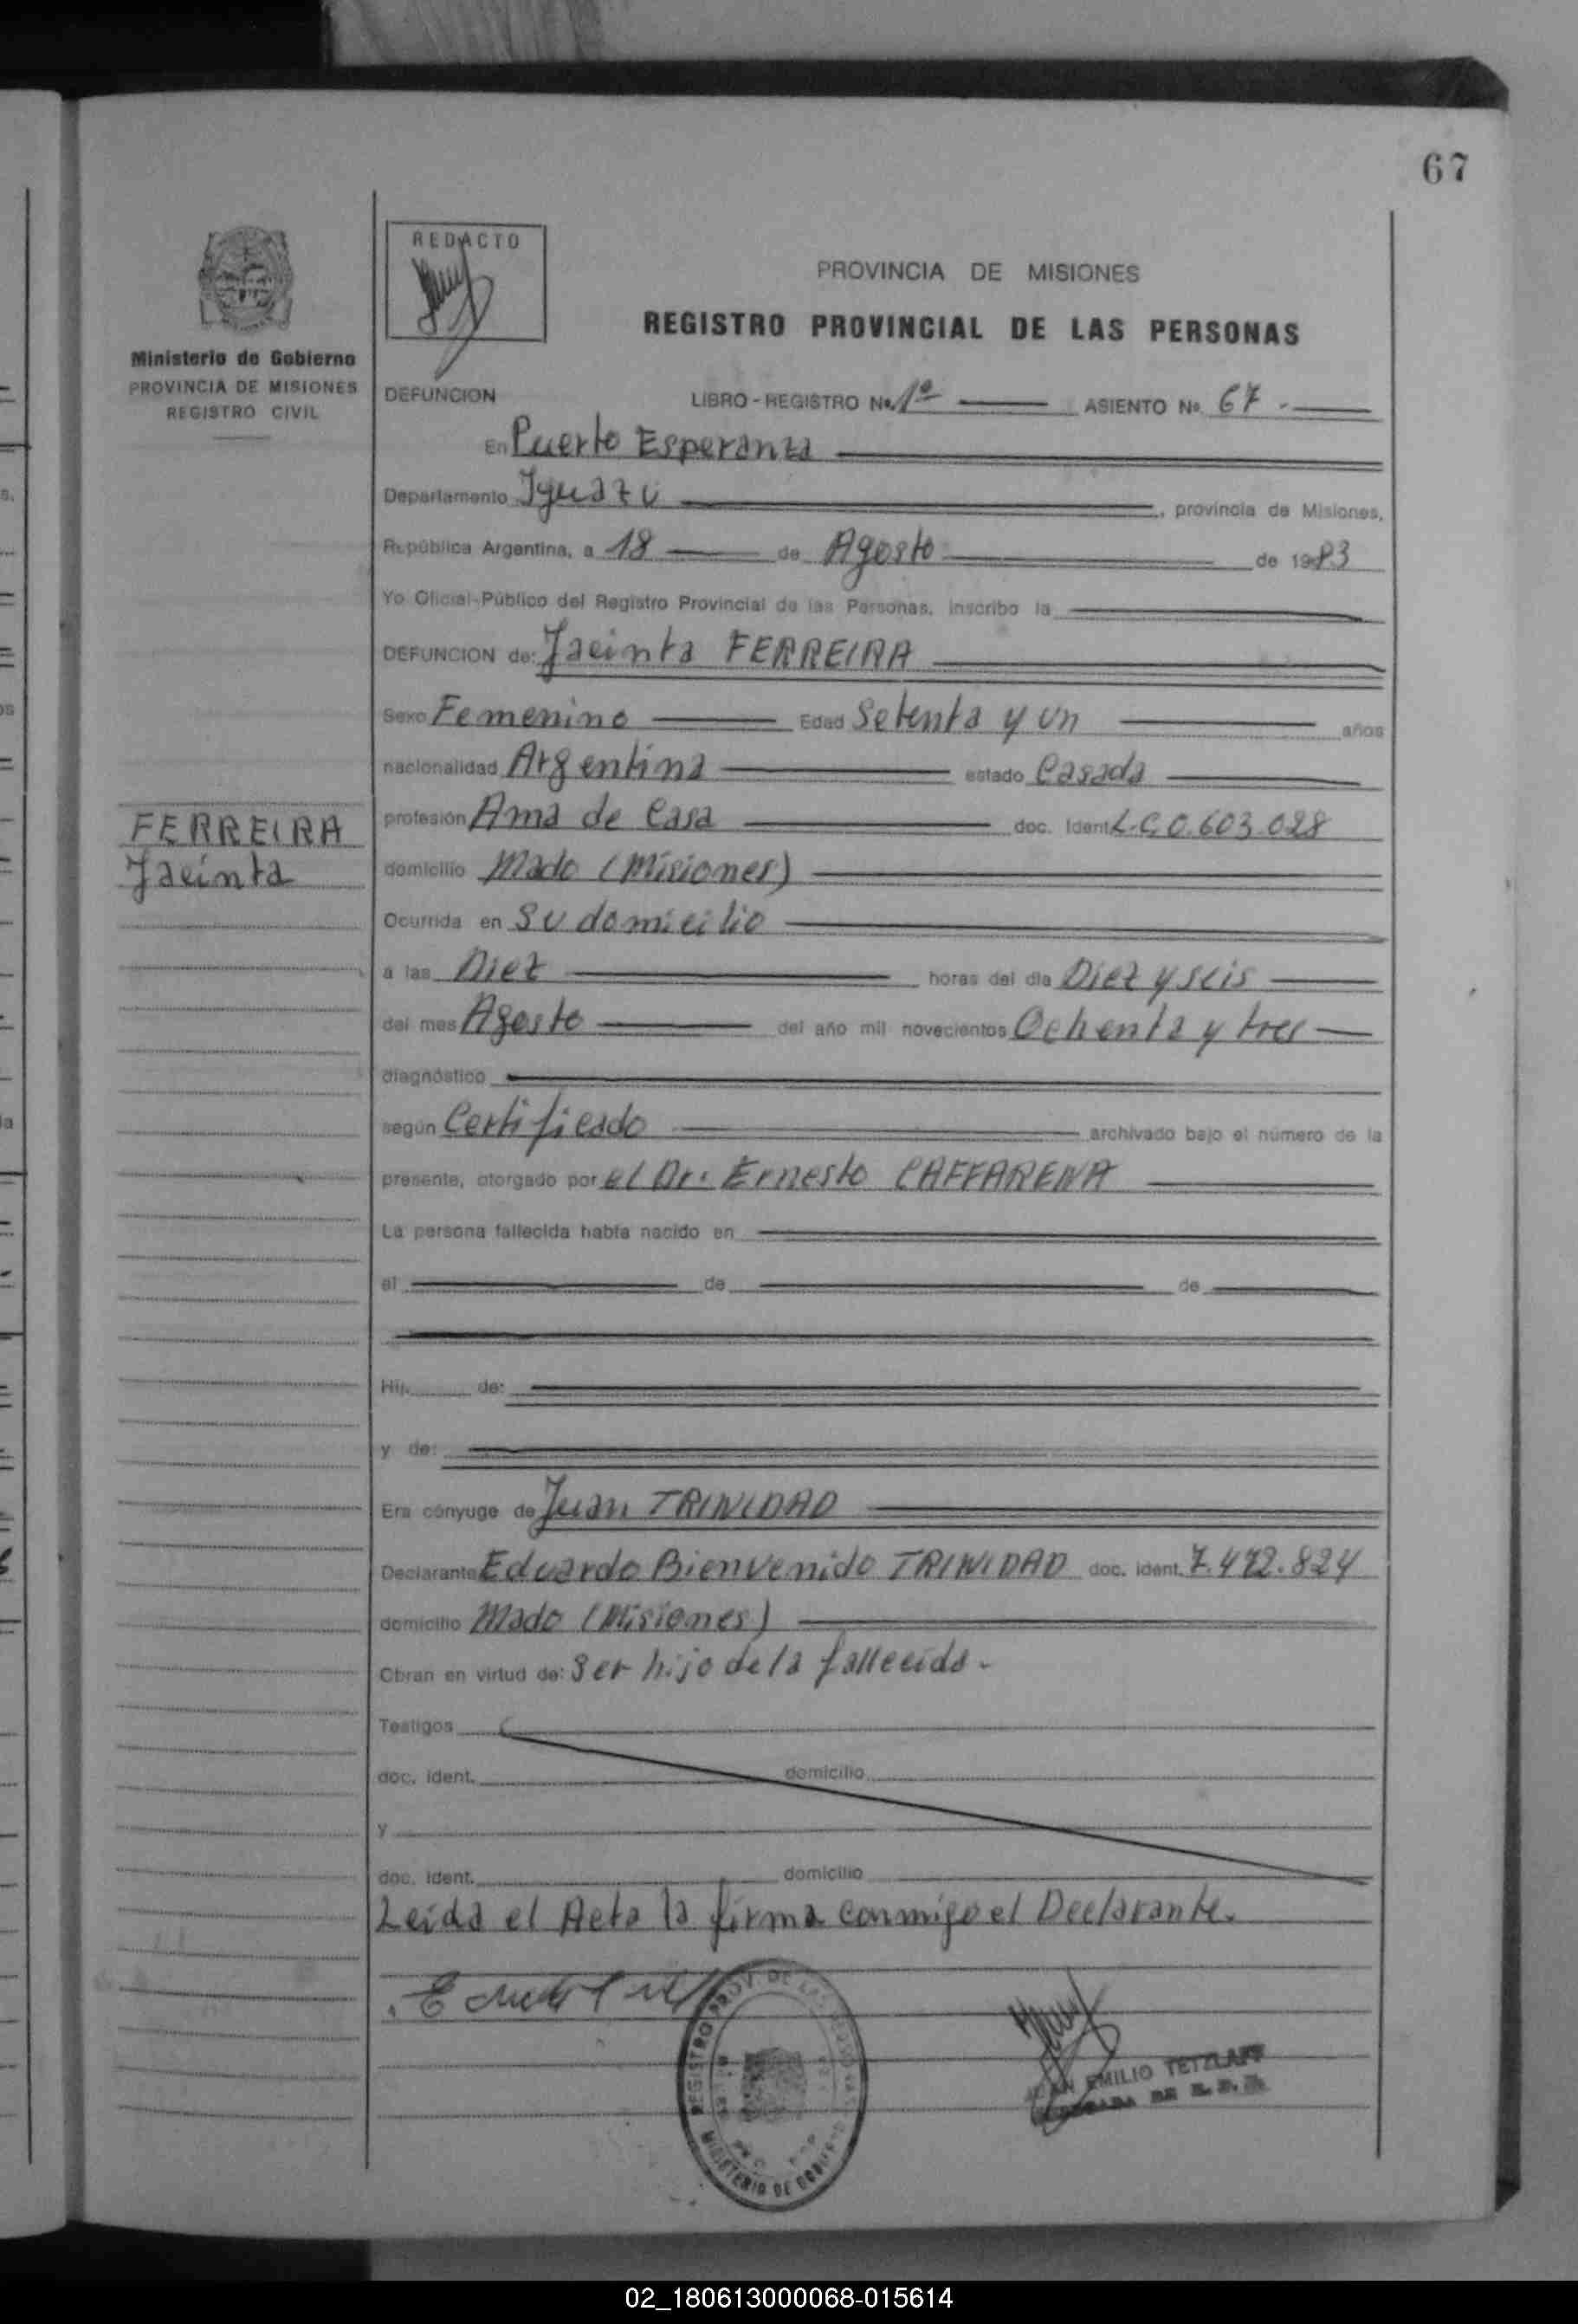 67
REDACTO
PROVINCIA DE MISIONES
REGISTRO PROVINCIAL DE LAS PERSONAS
Ministerio de Gobierno
PROVINCIA DE MISIONES
REGISTRO CIVIL
DEFUNCION LIBRO-REGISTRO Nº 1º ASIENTO Nº 67.-
En Puerto Esperanza
Departamento Iguazú, provincia de Misiones,
República Argentina, a 18 de Agosto de 1983
Yo Oficial Público del Registro Provincial de las Personas, inscribo la
DEFUNCION de: Jacinta FERREIRA
Sexo Femenino Edad Setenta y un años
nacionalidad Argentina estado Casada
FERREIRA
Jacinta
profesión Ama de Casa doc. Ident. L.C. 0.603.028
domicilio Mado (Misiones)
Ocurrida en Su domicilio
a las Diez horas del día Diez y seis
del mes Agosto del año mil novecientos Ochenta y tres
diagnóstico
según Certificado archivado bajo el número de la
presente, otorgado por el Dr. Ernesto CAFFARENA
La persona fallecida había nacido en
el de de
Hij de:
y de:
Era cónyuge de Juan TRINIDAD
Declarante Eduardo Bienvenido TRINIDAD doc. ident. 7.472.824
domicilio Mado (Misiones)
Obran en virtud de: Ser hijo de la fallecida.
Testigos
doc. ident. domicilio
y
doc. ident. domicilio
Leida el Acta la firma conmigo el Declarante.
REGISTRO PROV. DE LAS
MINISTERIO DE GOBIERNO
EMILIO TETZLAFF
02_180613000068-015614